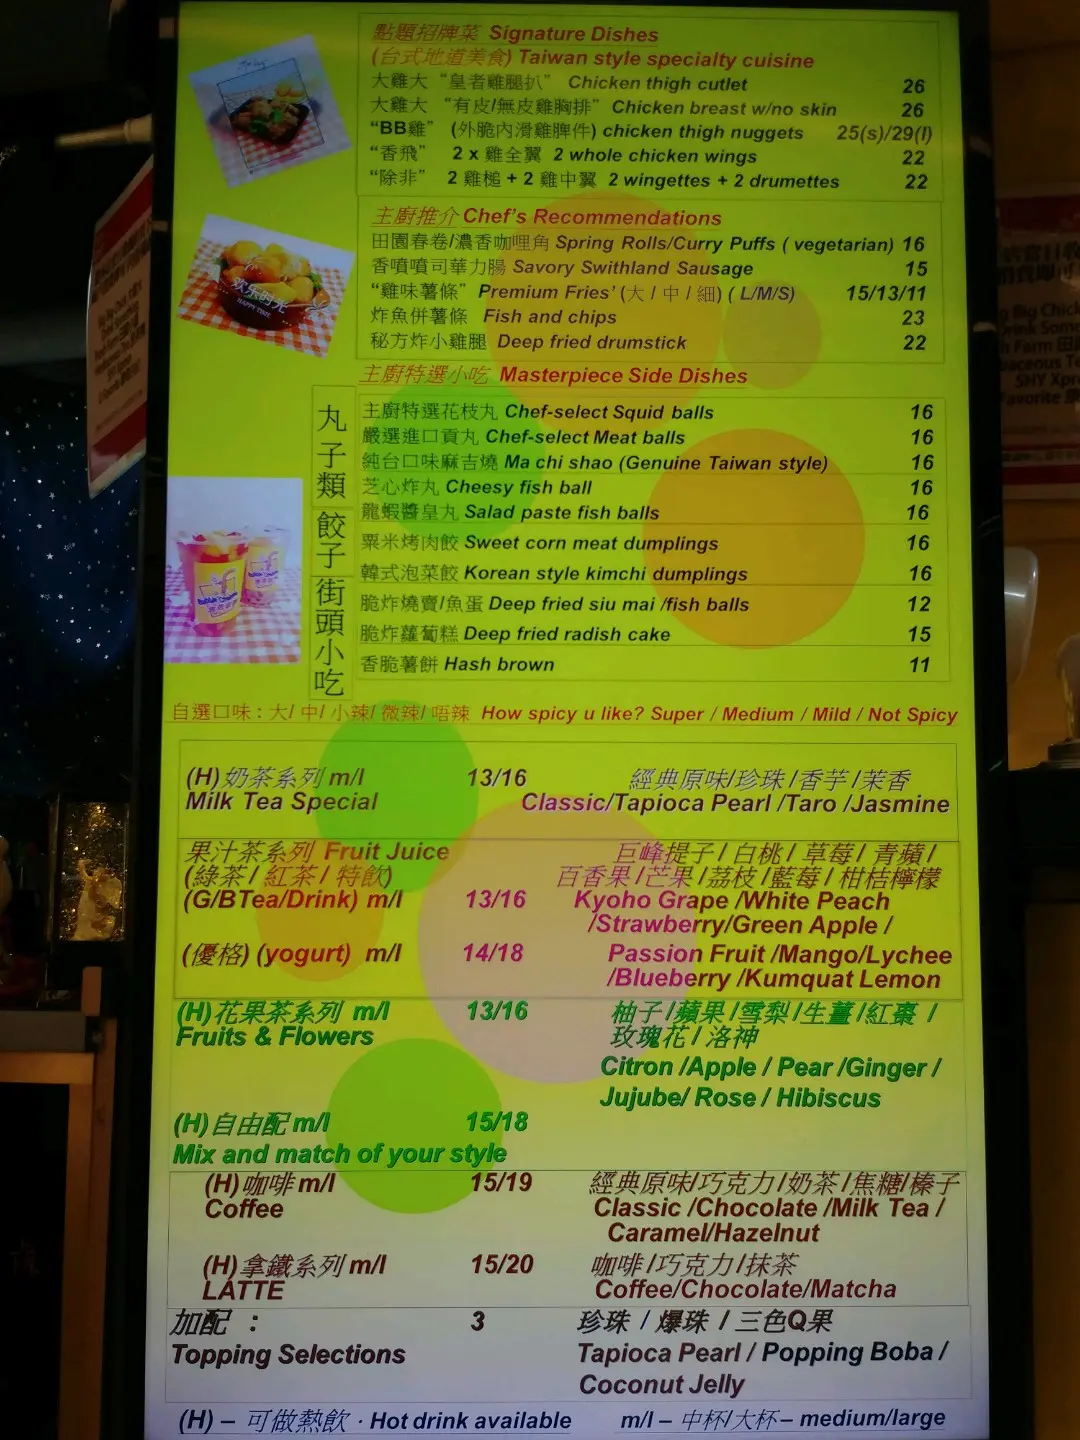 點題招牌菜 Signature Dishes
(台式地道美食) Taiwan style specialty cuisine
大雞大 “皇者雞腿扒” Chicken thigh cutlet 26
大雞大 “有皮/無皮雞胸排” Chicken breast w/no skin 26
“BB雞” (外脆內滑雞脾件) chicken thigh nuggets 25(s)/29(l)
“香飛” 2 x 雞全翼 2 whole chicken wings 22
“除非” 2 雞槌 + 2 雞中翼 2 wingettes + 2 drumettes 22
主廚推介 Chef's Recommendations
田園春卷/濃香咖哩角 Spring Rolls/Curry Puffs ( vegetarian) 16
香噴噴司華力腸 Savory Swithland Sausage 15
“雞味薯條” Premium Fries' (大 / 中 / 細) ( L/M/S) 15/13/11
炸魚併薯條 Fish and chips 23
秘方炸小雞腿 Deep fried drumstick 22
欢乐时光
HAPPY TIME
主廚特選小吃 Masterpiece Side Dishes
丸子類
餃子
街頭小吃
主廚特選花枝丸 Chef-select Squid balls 16
嚴選進口貢丸 Chef-select Meat balls 16
純台口味麻吉燒 Ma chi shao (Genuine Taiwan style) 16
芝心炸丸 Cheesy fish ball 16
龍蝦醬皇丸 Salad paste fish balls 16
粟米烤肉餃 Sweet corn meat dumplings 16
韓式泡菜餃 Korean style kimchi dumplings 16
脆炸燒賣/魚蛋 Deep fried siu mai /fish balls 12
脆炸蘿蔔糕 Deep fried radish cake 15
香脆薯餅 Hash brown 11
自選口味 : 大/ 中/ 小辣/ 微辣/ 唔辣 How spicy u like? Super / Medium / Mild / Not Spicy
(H) 奶茶系列 m/l 13/16 經典原味/珍珠 /香芋 /茉香
Milk Tea Special Classic/Tapioca Pearl /Taro /Jasmine
果汁茶系列 Fruit Juice 巨峰提子 / 白桃 / 草莓 / 青蘋 /
(綠茶 / 紅茶 / 特飲) 百香果 /芒果 /荔枝 /藍莓 / 柑桔檸檬
(G/BTea/Drink) m/l 13/16 Kyoho Grape /White Peach
/Strawberry/Green Apple /
(優格) (yogurt) m/l 14/18 Passion Fruit /Mango/Lychee
/Blueberry /Kumquat Lemon
(H) 花果茶系列 m/l 13/16 柚子 /蘋果 /雪梨 /生薑 /紅棗 /
Fruits & Flowers 玫瑰花 / 洛神
Citron /Apple / Pear /Ginger /
Jujube/ Rose / Hibiscus
(H) 自由配 m/l 15/18
Mix and match of your style
(H) 咖啡 m/l 15/19 經典原味/巧克力 /奶茶 /焦糖/榛子
Coffee Classic /Chocolate /Milk Tea /
Caramel/Hazelnut
(H) 拿鐵系列 m/l 15/20 咖啡 /巧克力 /抹茶
LATTE Coffee/Chocolate/Matcha
加配 : 3 珍珠 / 爆珠 / 三色Q果
Topping Selections Tapioca Pearl / Popping Boba /
Coconut Jelly
(H) – 可做熱飲 · Hot drink available m/l – 中杯/大杯 – medium/large